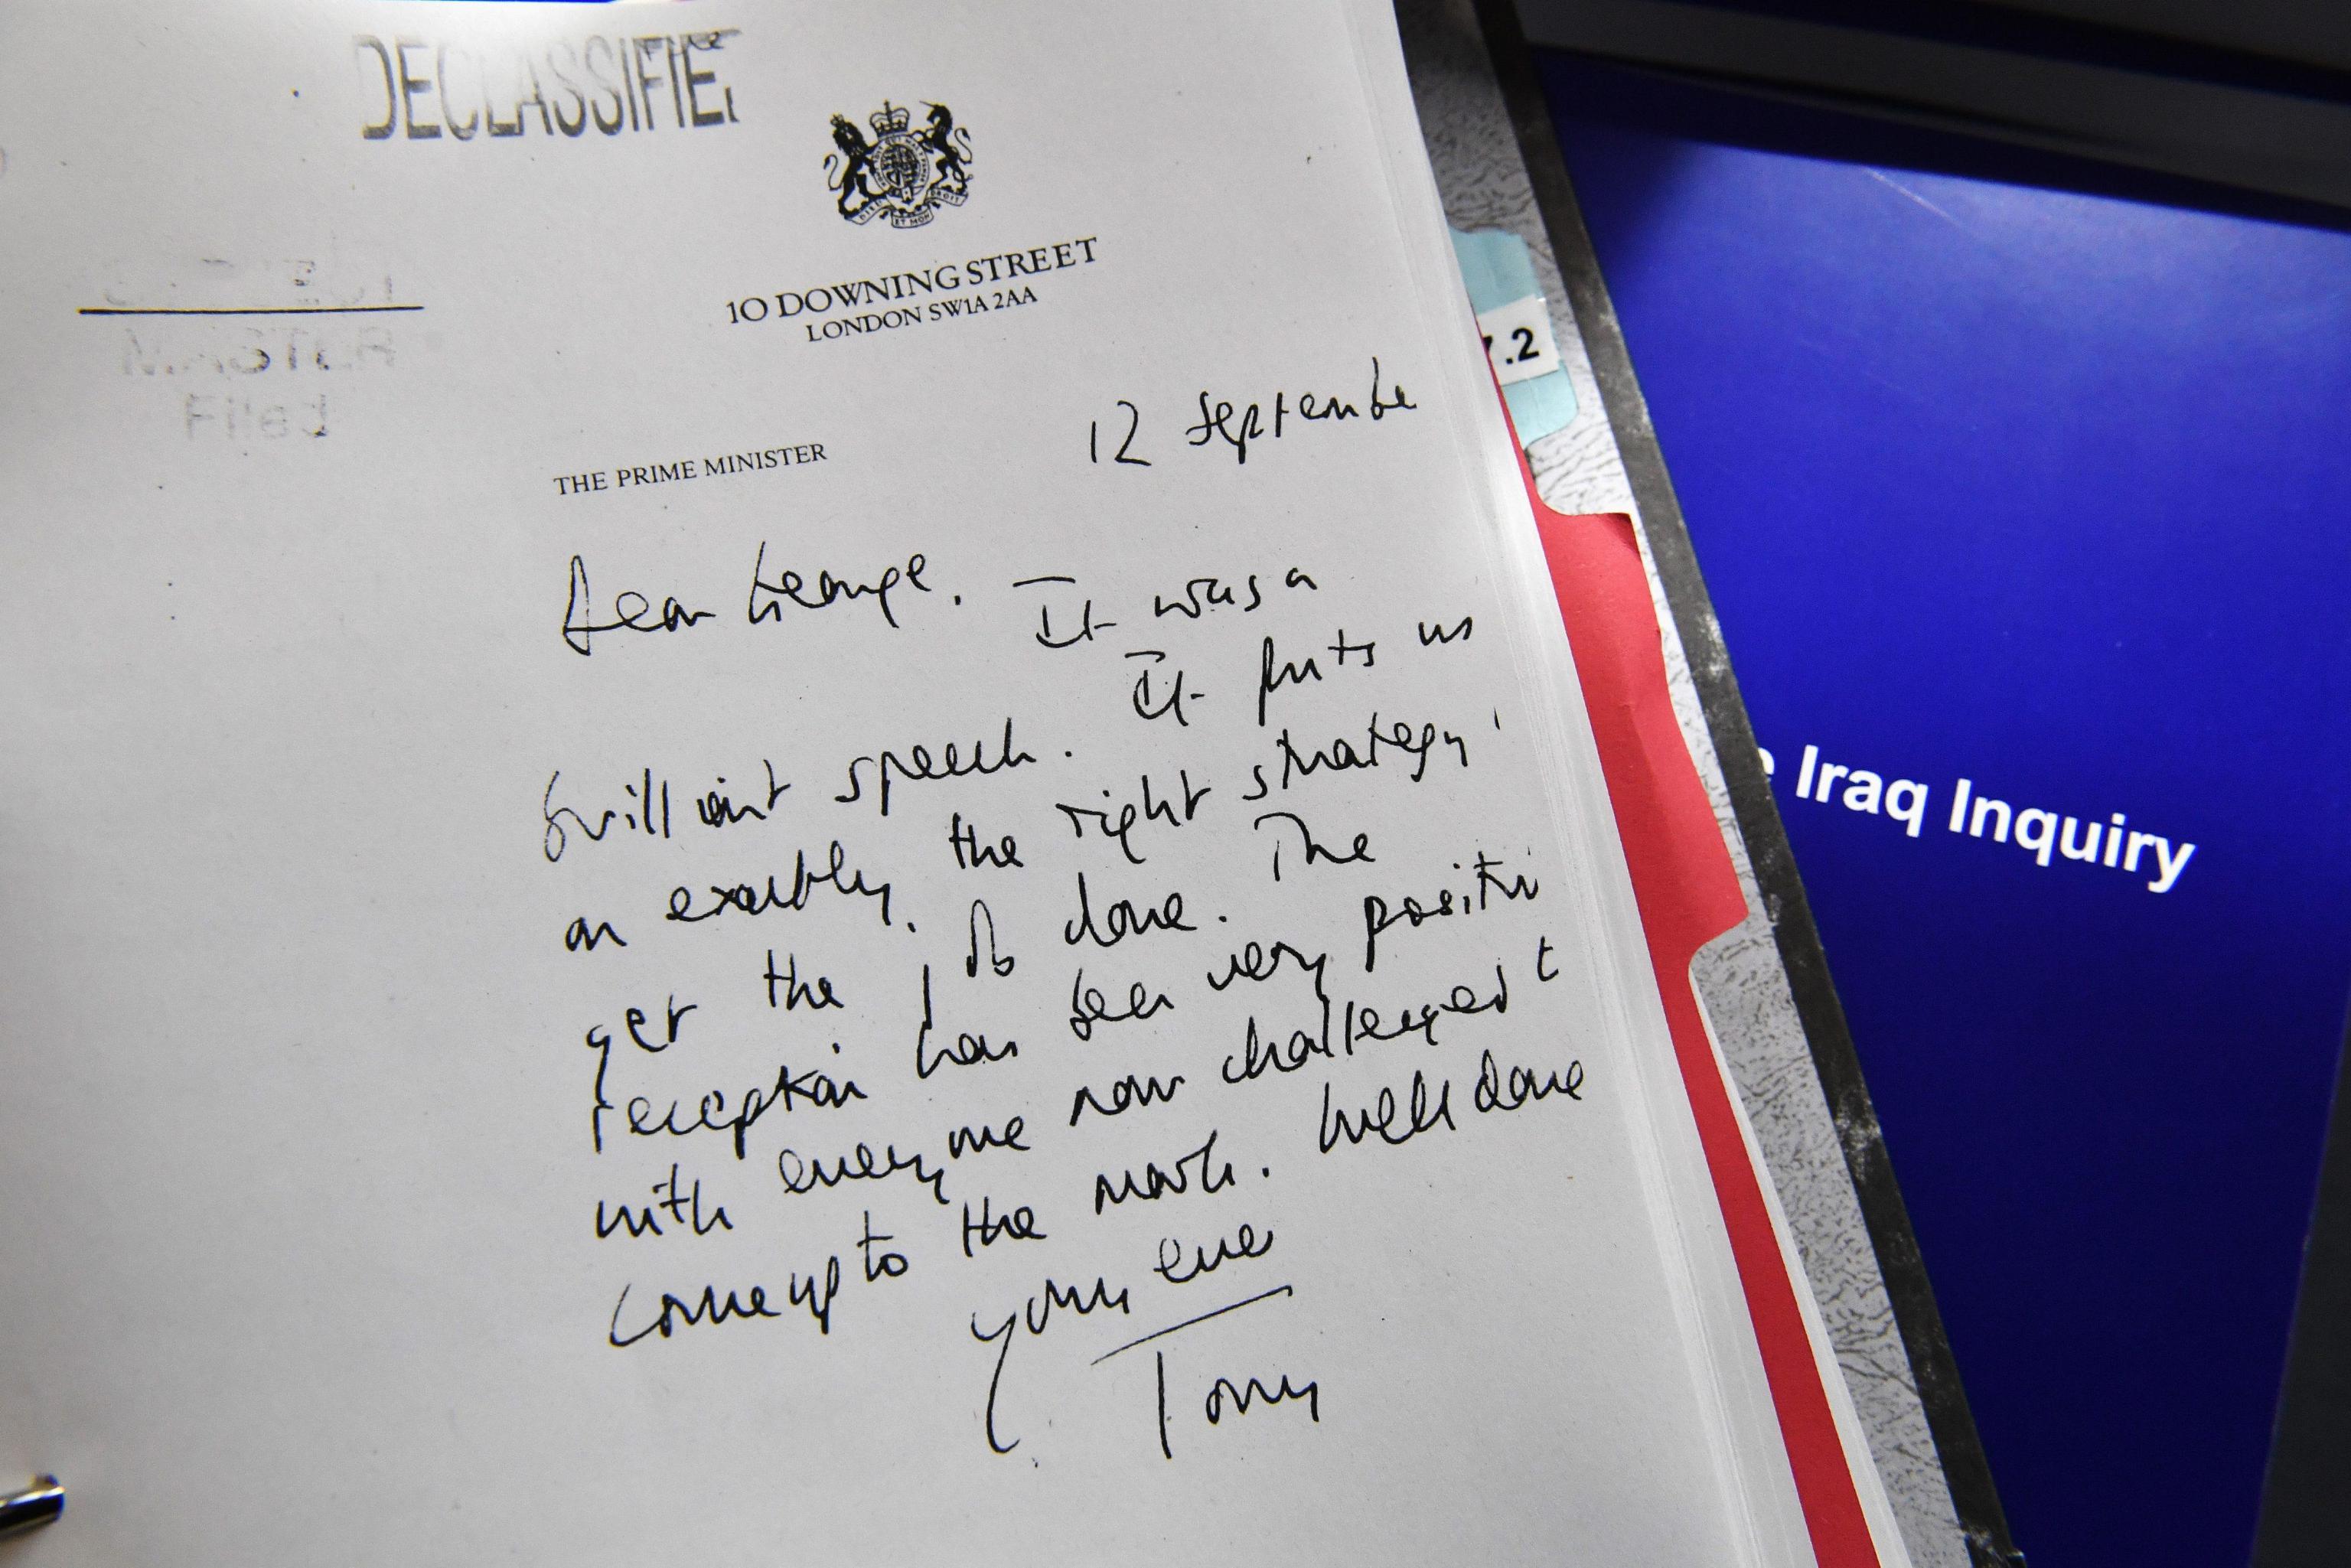 DECLASSIFIED
10 DOWNING STREET
LONDON SW1A 2AA
Filed
7.2
12 September
THE PRIME MINISTER
Dear George. It was a
brilliant speech. It puts us
on exactly the right strategy
get the job done. The
reception has been very positive
with everyone now challenged t
come up to the mark. Well done
yours ever
Tony
Iraq Inquiry